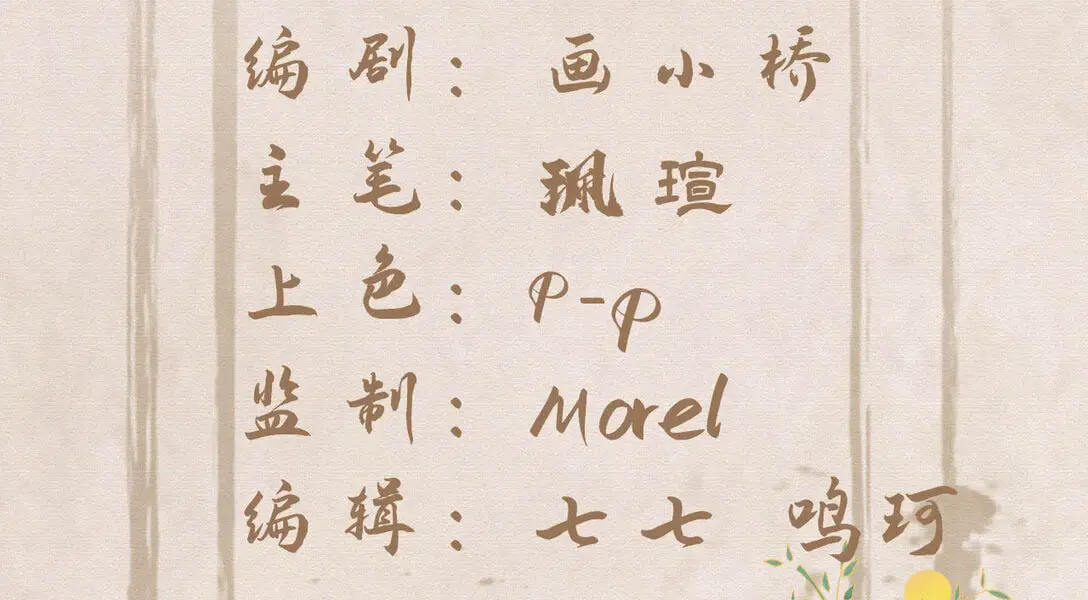 编剧：画小桥
主笔：珮瑄
上色：P-P
监制：Morel
编辑：七七 鸣珂